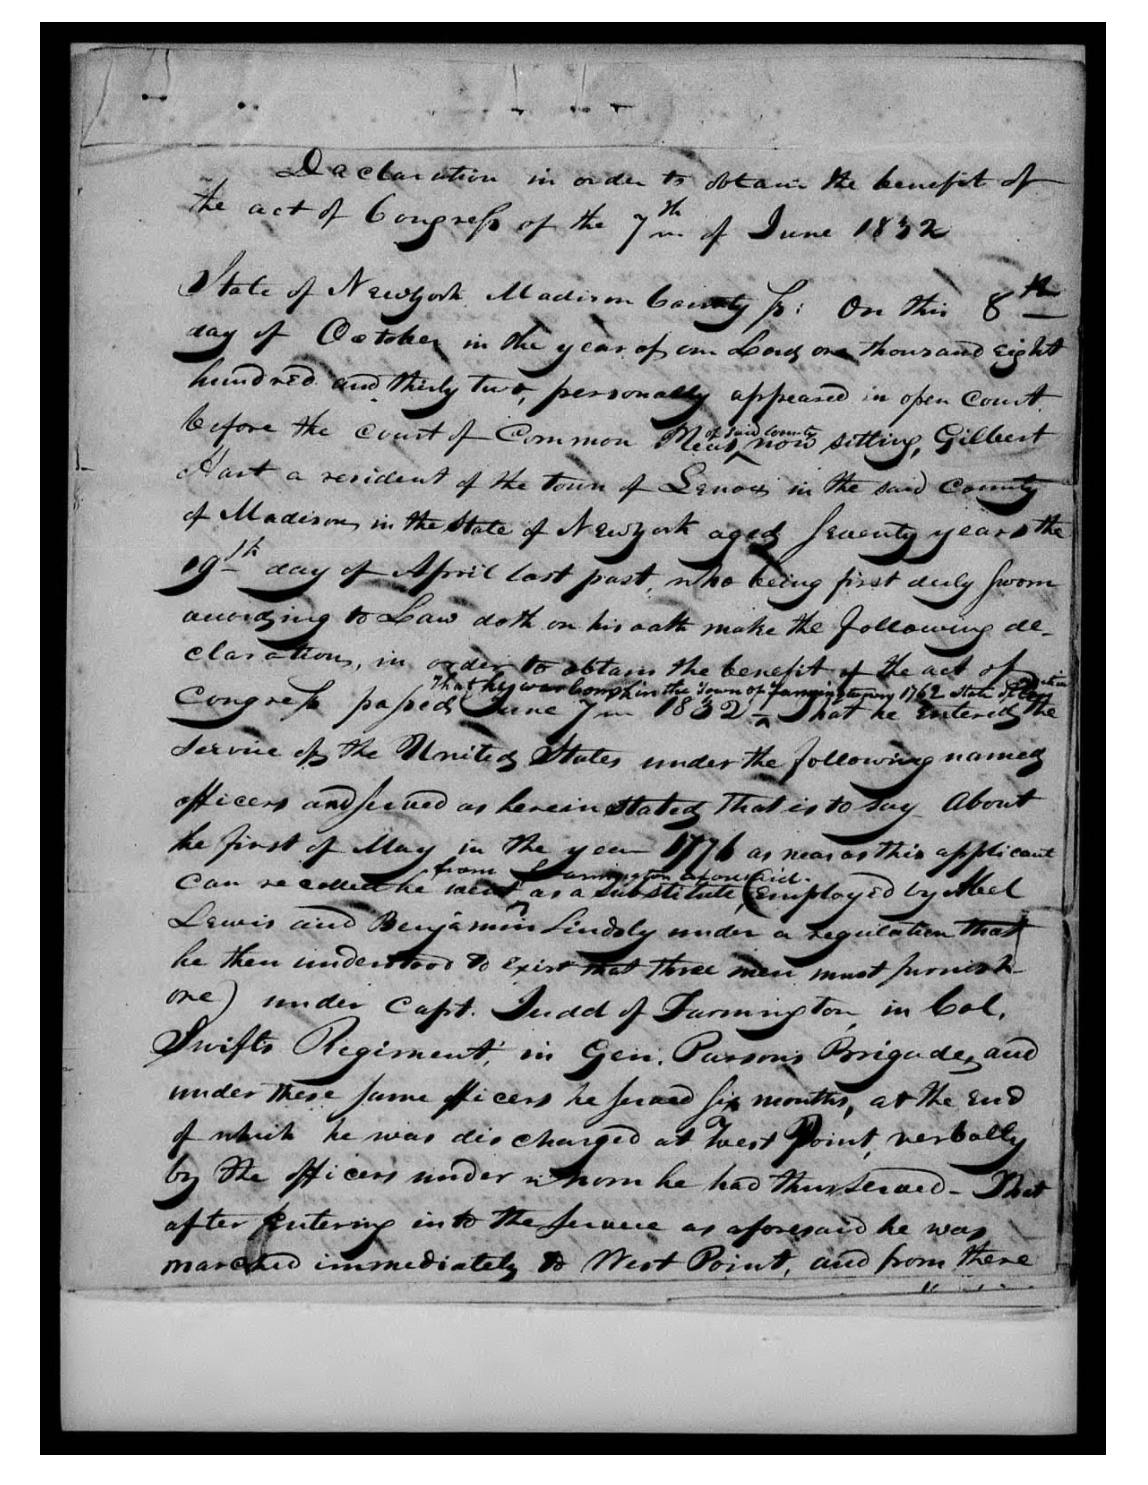 Daclaration in order to obtain the benefit of
the act of Congress of the 7th of June 1832
State of Newyork Madison County Ss: On this 8th
day of October in the year of our Lord one thousand eight
hundred and thirty two, personally appeared in open Court
before the court of Common Pleas of said County now sitting, Gilbert
Hart a resident of the town of Lenox in the said County
of Madison, in the State of Newyork aged Seventy years the
19th day of April last past, who being first duly Sworn
according to Law doth on his oath make the following de-
claration, in order to obtain the benefit of the act of
That he was born in the Town of Farmington 1762 State of Connecticut
Congress passed June 7 1832 That he entered the
Service of the United States under the following named
officers and served as herein stated That is to say About
the first of May in the year 1776 as near as this applicant
from Farmington aforesaid.
can recollect he went as a substitute, (employed by Abel
Lewis and Benjamin Lindsly under a regulation that
he then understood to exist that three men must furnish
one) under Capt. Judd of Farmington, in Col.
Swifts Regiment, in Gen. Parsons Brigade, and
under these same officers he served six months, at the end
of which he was discharged at West Point, verbally
by the officers under whom he had thus served - That
after entering into the service as aforesaid he was
marched immediately to West Point, and from there